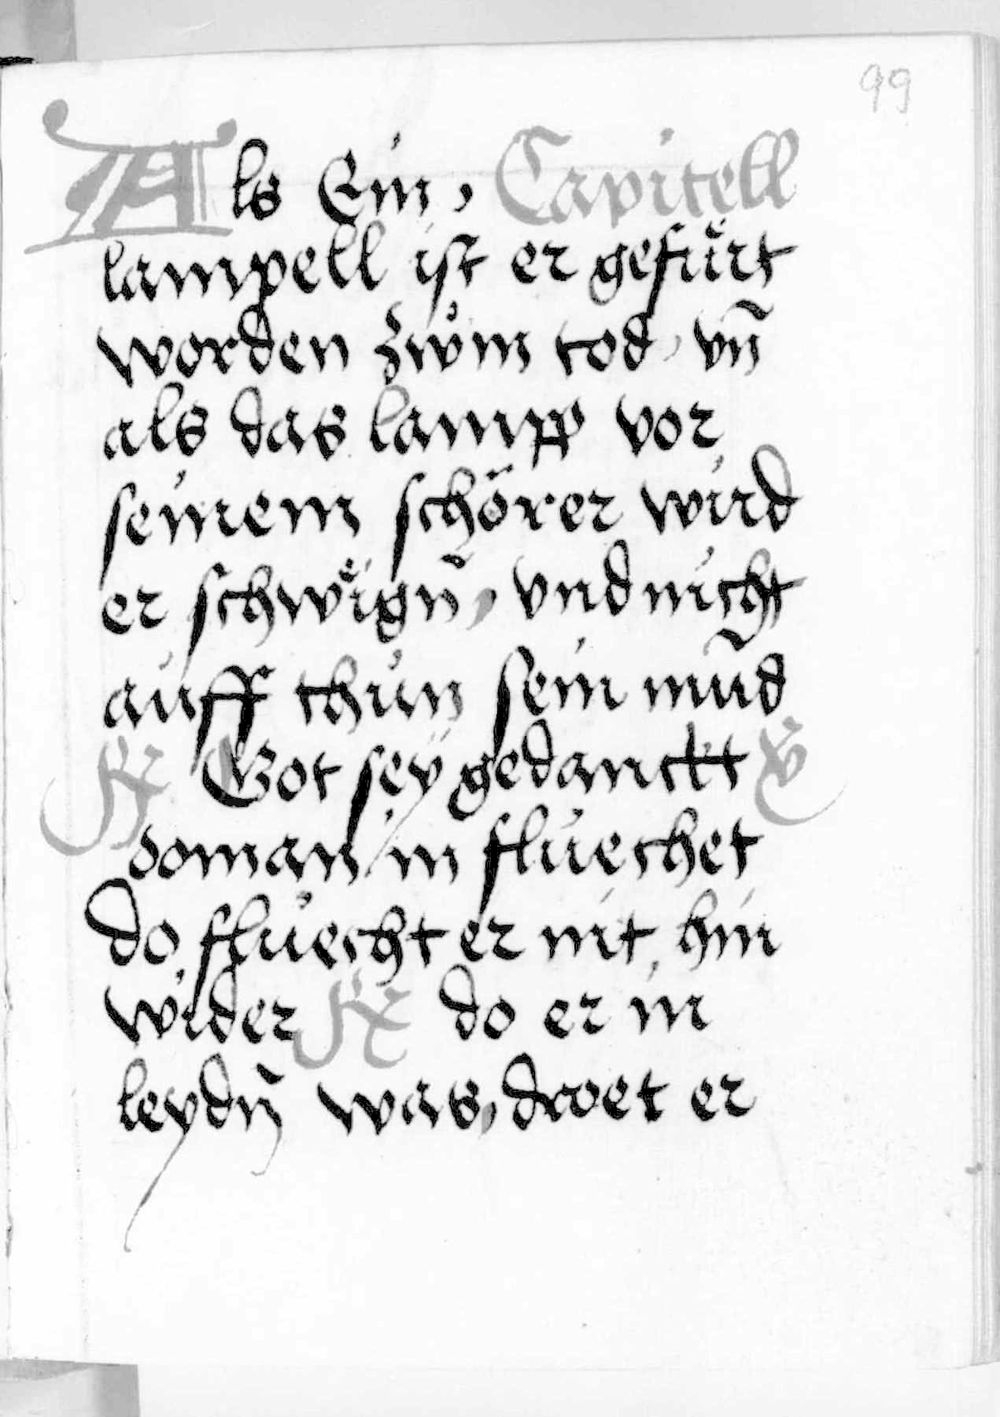 99
Als Ein, Capitell
lampell ist er gefürt
worden zwm tod, vn̄
als das lampp vor
seinem schörer wird
er schweign̄, vnd nicht
auff thun sein mūd
R Got sey gedanckt V
do man in fluechet
do fluecht er nit, hin
wider R do er in
leydn̄ was, droet er